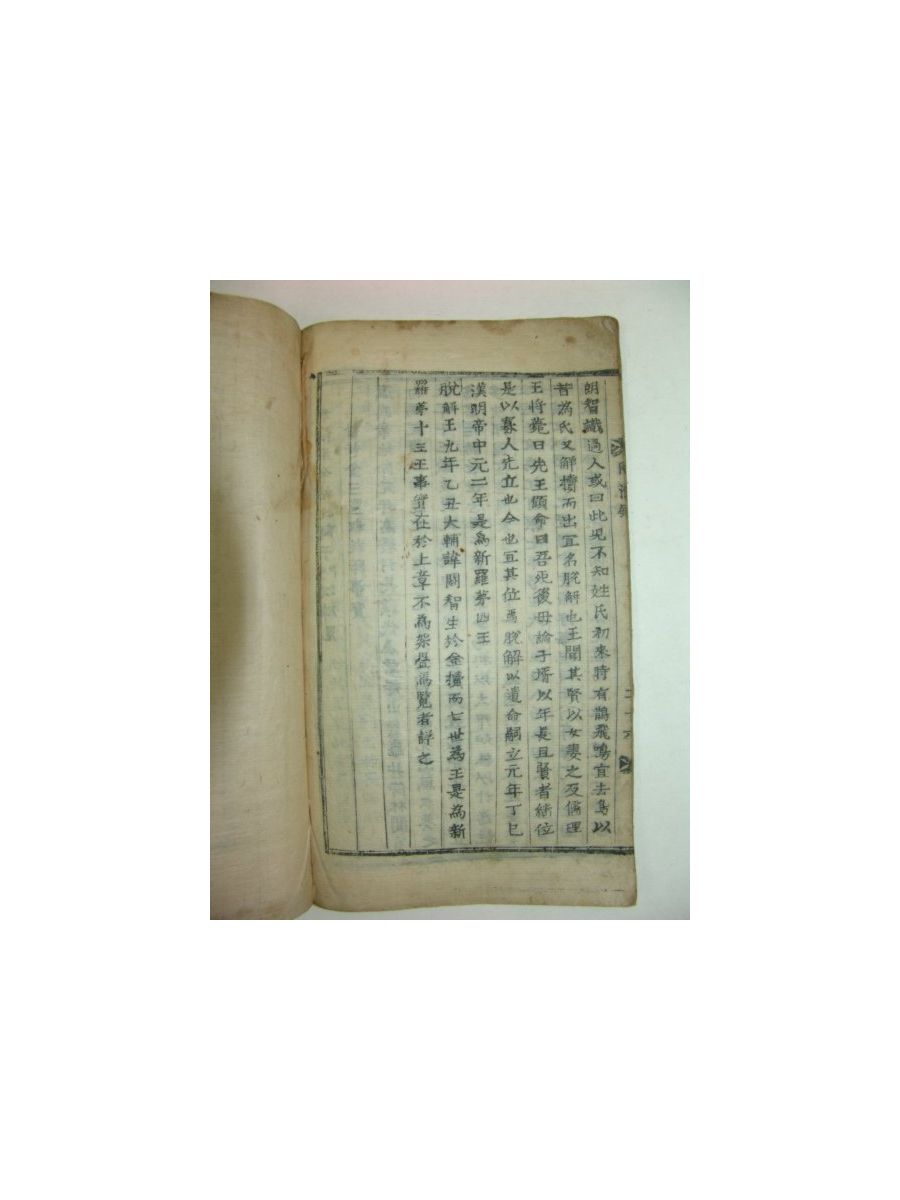 朗智識過人或曰此児不知姓氏初來時有鵲飛鳴宜去鳥以
昔爲氏又解櫝而出宜名脫解也王聞其賢以女妻之及儒理
王將薨曰先王顧命曰吾死後毋論子壻以年長且賢者継位
是以寡人先立也今也宜其位焉脫解以遺命嗣立元年丁巳
漢明帝中元二年是爲新羅苐四王
脫解王九年乙丑大輔諱閼智生於金櫝而七世爲王是爲新
羅苐十三王事實在於上章不爲架疊焉覧者詳之
二十六